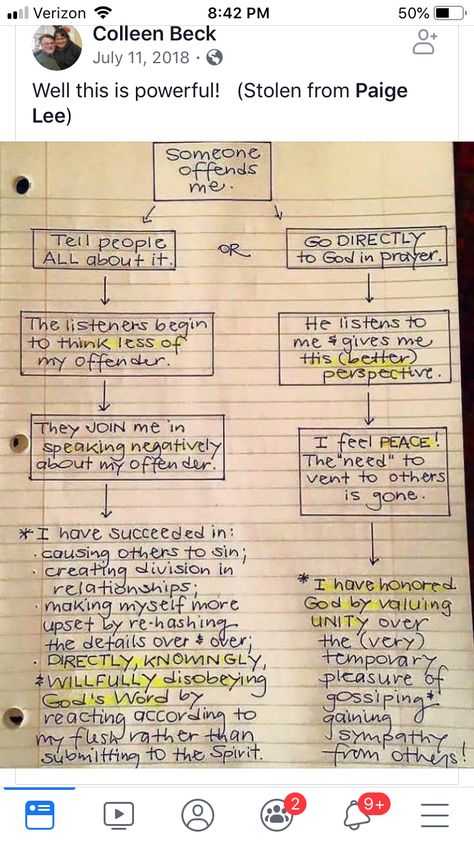 Verizon 8:42 PM 50%
Colleen Beck
July 11, 2018 ·
Well this is powerful! (Stolen from Paige
Lee)
Someone
offends
me.
Tell people
ALL about it.
OR
GO DIRECTLY
to God in prayer.
The listeners begin
to think less of
my offender.
He listens to
me & gives me
His (better)
perspective.
They JOIN me in
speaking negatively
about my offender.
I feel PEACE!
The "need" to
vent to others
is gone.
*I have succeeded in:
· causing others to sin;
· creating division in
relationships;
· making myself more
upset by re-hashing
the details over & over;
· DIRECTLY, KNOWINGLY,
& WILLFULLY disobeying
God's Word by
reacting according to
my flesh rather than
submitting to the Spirit.
*I have honored
God by valuing
UNITY over
the (very)
temporary
pleasure of
gossiping*
gaining
sympathy
from others!
2
9+